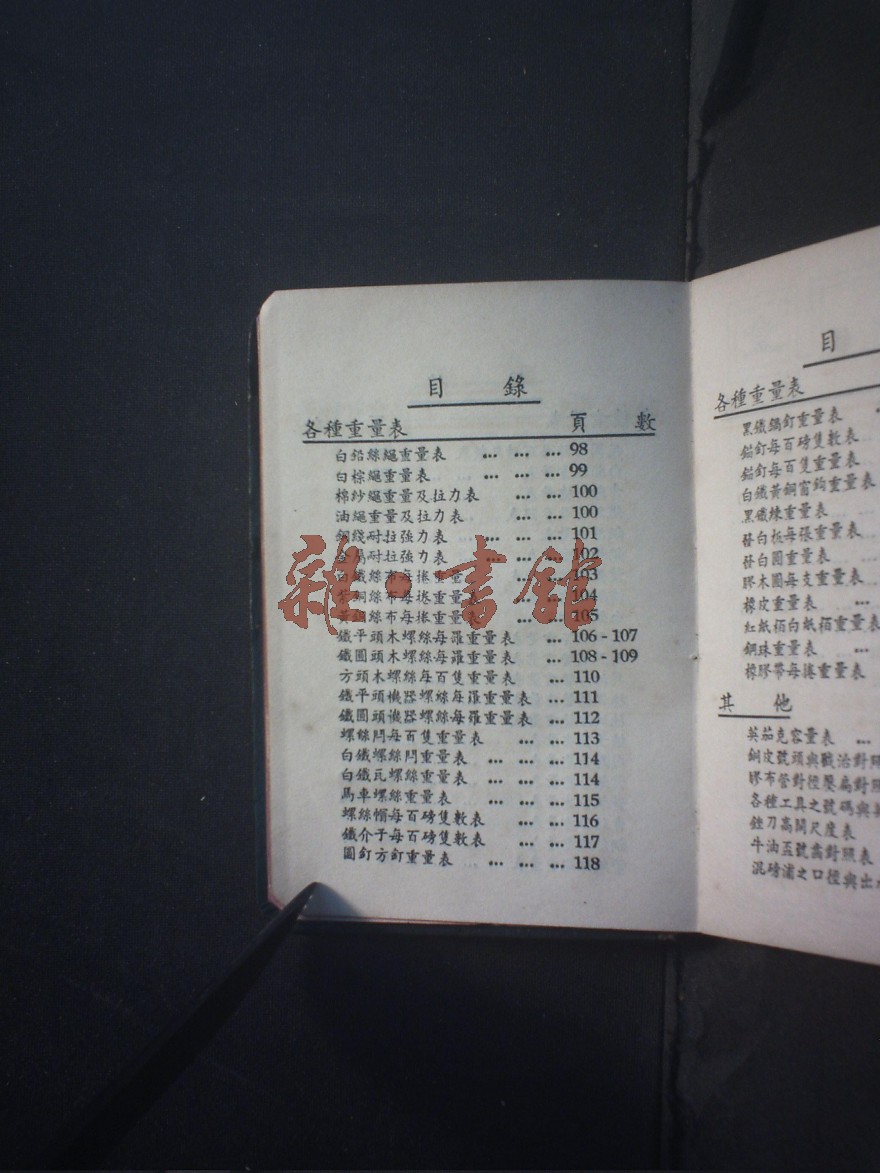 目 錄
各種重量表 頁 數
白鉛絲繩重量表 … … … 98
白棕繩重量表 … … … 99
棉紗繩重量及拉力表 … … 100
油繩重量及拉力表 … … 100
鋼綫耐拉強力表 … … … 101
金屬耐拉強力表 … … … 102
白鐵絲布每捲重量 … 103
紫銅絲布每捲重量表 … … 104
黃銅絲布每捲重量表 … … 105
鐵平頭木螺絲每羅重量表 … 106 - 107
鐵圓頭木螺絲每羅重量表 … 108 - 109
方頭木螺絲每百隻重量表 … 110
鐵平頭機器螺絲每羅重量表 … 111
鐵圓頭機器螺絲每羅重量表 … 112
螺絲閂每百隻重量表 … … 113
白鐵螺絲閂重量表 … … … 114
白鐵瓦螺絲重量表 … … … 114
馬車螺絲重量表 … … … 115
螺絲帽每百磅隻數表 … … 116
鐵介子每百磅隻數表 … … 117
圓釘方釘重量表 … … … 118
雜·書館
目
各種重量表
黑鐵鍋釘重量表
鉛釘每百磅隻數表
鉛釘每百隻重量表
白鐵黃銅窗鈎重量表
黑鐵煉重量表
發白板每張重量表
發白圓重量表
膠木圓每支重量表
橡皮重量表 …
紅紙栢白紙栢重量表
鋼珠重量表 …
橡膠帶每捲重量表
其 他
英茄克容量表 …
鋼皮號頭與
膠布管對徑壓扁對照
各種工具之號碼與
銼刀高開尺度表
牛油盃號
對照表
之口徑與出